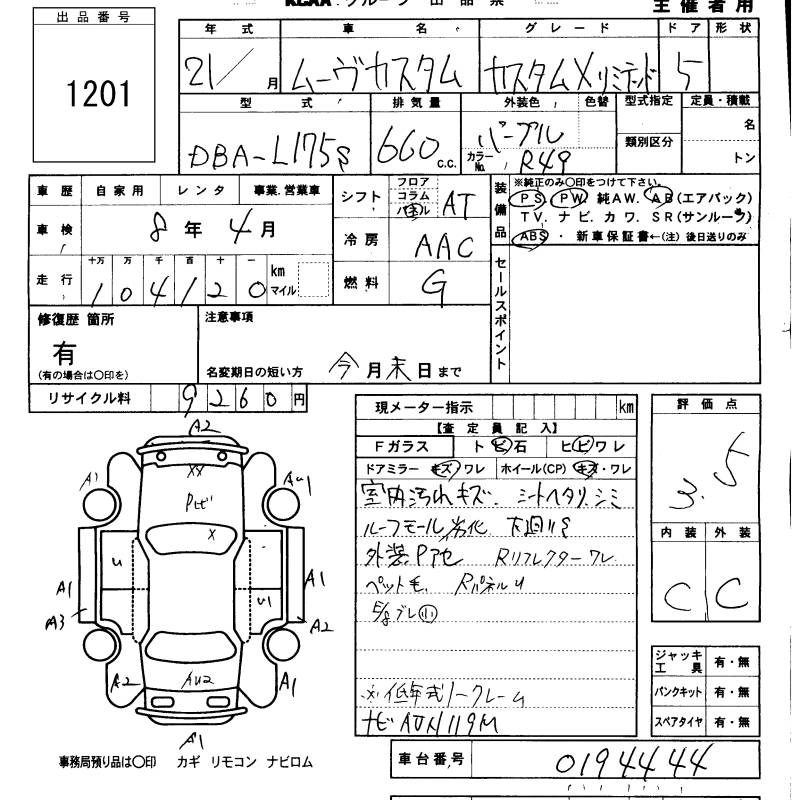 KCAA グループ 出 品 票
主 催 者 用
出 品 番 号
1201
年 式
車 名
グ レ ー ド
ド ア
形 状
21/ 月
ムーヴカスタム
カスタムXリミテッド
5
型 式
排 気 量
外装色
色替
型式指定
定員・積載
DBA-L175S
660 c.c.
パープル
カラーNo. R49
類別区分
名
トン
車 歴
自 家 用
レ ン タ
事業.営業車
車 検
8 年 4 月
走 行
十万 万 千 百 十 一
104120
km
マイル
シフト
フロア
コラム
パネル
AT
冷 房
AAC
燃 料
G
装備品
※純正のみ〇印をつけて下さい。
PS. PW. 純AW. AB(エアバック)
TV. ナビ. カワ. SR(サンルーフ)
ABS ・ 新車保証書←(注) 後日送りのみ
セールスポイント
修復歴 箇所
有
(有の場合は〇印を)
注意事項
名変期日の短い方
今月末日まで
リサイクル料
9260円
現メーター指示
km
【査 定 員 記 入】
Fガラス
ト ビ 石
ヒビワレ
ドアミラー キズ・ワレ
ホイール(CP) キズ・ワレ
室内汚れキズ. シートヘタリ.シミ
ルーフモール劣化 下廻りS
外装Pアセ Rリフレクターワレ
ペット毛. RパネルU
E/gブレ小
※低年式ノークレーム
ナビAUX119M
評 価 点
3.5
内 装
外 装
C
C
ジャッキ
工 具
有・無
パンクキット
有・無
スペアタイヤ
有・無
A2
XX
Pヒビ
X
A1
AU1
U
U1
A1
A1
A3
A2
A2
AU2
A1
A1
事務局預り品は〇印 カギ リモコン ナビロム
車 台 番 号
0194444